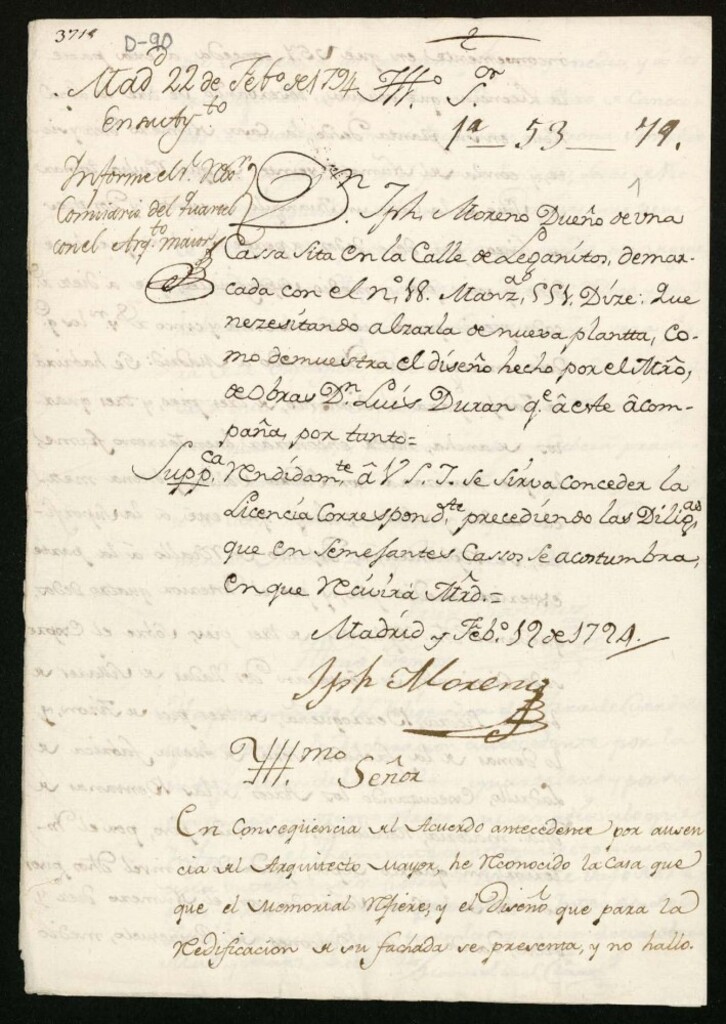 3714
D-90
2
Mad.d 22 de Feb.o de 1794
En su Ay.to
Informe el s.r Reg.or
Comisario del quartel
con el Arq.to maior
Ill.o S.or
1a — 53 — 79.
D.n Jph. Moreno Dueño de una
Cassa sita en la Calle de Leganitos, demar-
cada con el n.o 18. Manz.a 551. Dize: Que
nezesitando alzarla de nueva plantta, co-
mo demuestra el diseño hecho por el Mro,
de Obras D.n Luis Duran q.e â este âcom-
paña, por tanto=
Supp.ca Rendidam.te â V S. I. se sirva conceder la
Licencia Correspond.te precediendo las Dilig.as
que en Semejantes Cassos se acostumbra,
en que Recivirà Mrd.=
Madrid y Feb.o 19 de 1794.
Jph Moreno
Yllmo
Señor
En Conseqüencia del Acuerdo antecedente por ausen
cia del Arquitecto Mayor, he Reconocido la Casa que
que el Memorial Refiere, y el diseño que para la
Redificacion de su fachada se presenta, y no hallo.